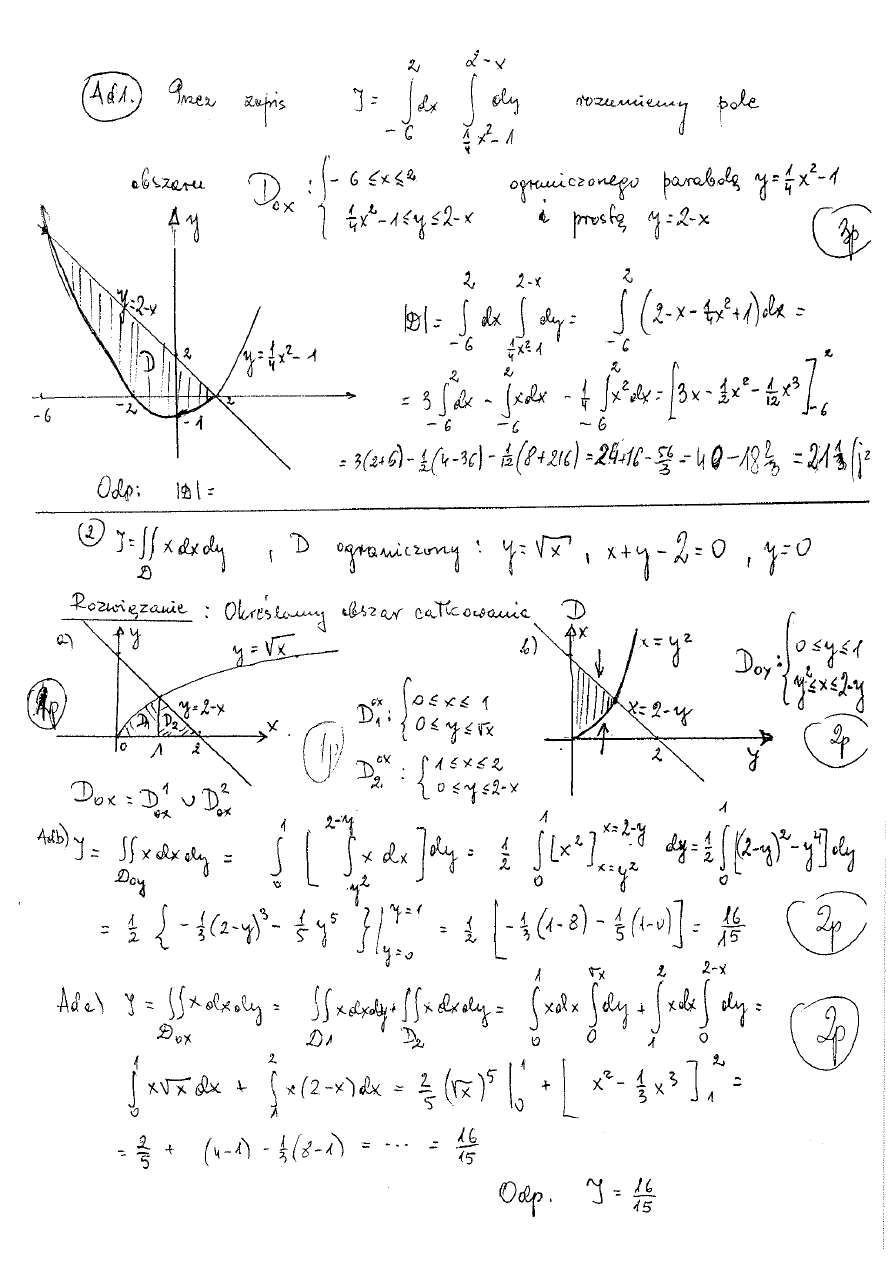 Ad1. Przez zapis J = ∫_{-6}^{2} dx ∫_{¼x²-1}^{2-x} dy rozumiemy pole
obszaru D_{ox} : { -6 ≤ x ≤ 2 ; ¼x²-1 ≤ y ≤ 2-x ograniczonego parabolą y = ¼x²-1 i prostą y = 2-x
3p
y
y = 2-x
D
2
y = ¼x² - 1
-6 -2 -1 2
|D| = ∫_{-6}^{2} dx ∫_{¼x²-1}^{2-x} dy = ∫_{-6}^{2} (2-x-¼x²+1)dx =
= 3∫_{-6}^{2} dx - ∫_{-6}^{2} xdx - ¼∫_{-6}^{2} x²dx = [3x - ½x² - 1/12 x³]_{-6}^{2}
= 3(2+6) - ½(4-36) - 1/12(8+216) = 24+16 - 56/3 = 40 - 18 2/3 = 21 1/3 (j²
Odp: |D| =
2 J = ∬_D x dx dy , D ograniczony : y = √x , x+y-2=0 , y=0
Rozwiązanie : Określamy obszar całkowania D
a) y
y = √x
y = 2-x
D₁ D₂
0 1 2 x
1p
D₁^{ox} : { 0 ≤ x ≤ 1 ; 0 ≤ y ≤ √x
D₂^{ox} : { 1 ≤ x ≤ 2 ; 0 ≤ y ≤ 2-x
1p
b) x
x = y²
x = 2-y
2 y
D_{oy} : { 0 ≤ y ≤ 1 ; y² ≤ x ≤ 2-y
2p
D_{ox} = D^1_{ox} ∪ D^2_{ox}
Adb) J = ∬_{D_{oy}} x dx dy = ∫_0^1 [ ∫_{y²}^{2-y} x dx ] dy = ½ ∫_0^1 [x²]_{x=y²}^{x=2-y} dy = ½ ∫_0^1 [(2-y)² - y⁴] dy
= ½ { -⅓(2-y)³ - ⅕y⁵ }|_{y=0}^{y=1} = ½ [-⅓(1-8) - ⅕(1-0)] = 16/15
2p
Ad a) J = ∬_{D_{ox}} x dx dy = ∬_{D1} x dx dy + ∬_{D2} x dx dy = ∫_0^1 xdx ∫_0^{√x} dy + ∫_1^2 xdx ∫_0^{2-x} dy =
2p
∫_0^1 x√x dx + ∫_1^2 x(2-x)dx = 2/5 (√x)⁵ |_0^1 + [ x² - ⅓x³ ]_1^2 =
= 2/5 + (4-1) - ⅓(8-1) = ... = 16/15
Odp. J = 16/15